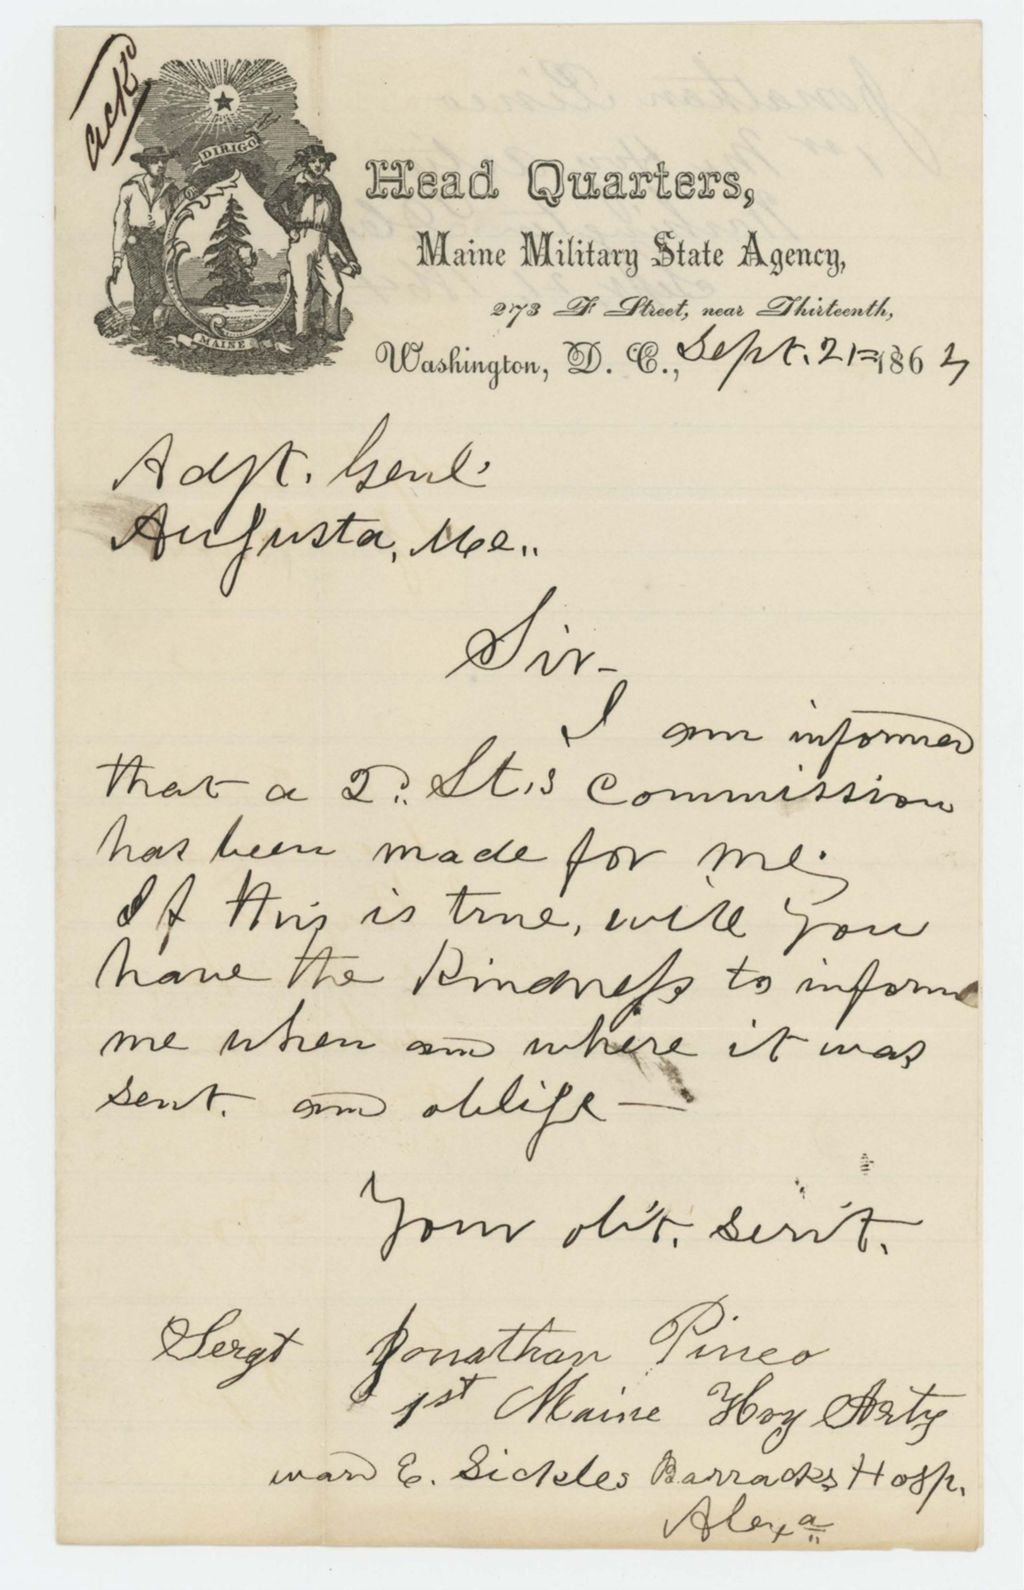 ackd
DIRIGO
MAINE
Head Quarters,
Maine Military State Agency,
273 F Street, near Thirteenth,
Washington, D. C., Sept. 21= 1864
Adjt. Genl.
Augusta, Me..
Sir-
I am informed
that a 2d. Lt.s Commission
has been made for me;
If this is true, will you
have the kindness to inform
me when and where it was
sent. and oblige —
Your ob't. serv't.
Sergt Jonathan Pineo
1st Maine Hvy Arty
ward E. Sickles Barracks Hosp.
Alexa